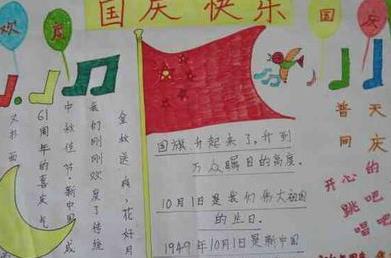 国庆快乐
欢度
国庆
金秋送爽,花好月
我们刚刚欢度了传统
中秋佳节,新中国成
61周年的喜庆气
又扑面
国旗升起来了,升到
万众瞩目的高度。
10月1日是我们伟大祖国
的生日。
1949年10月1日是新中国
普天
同庆
开心的
跳吧
唱吧